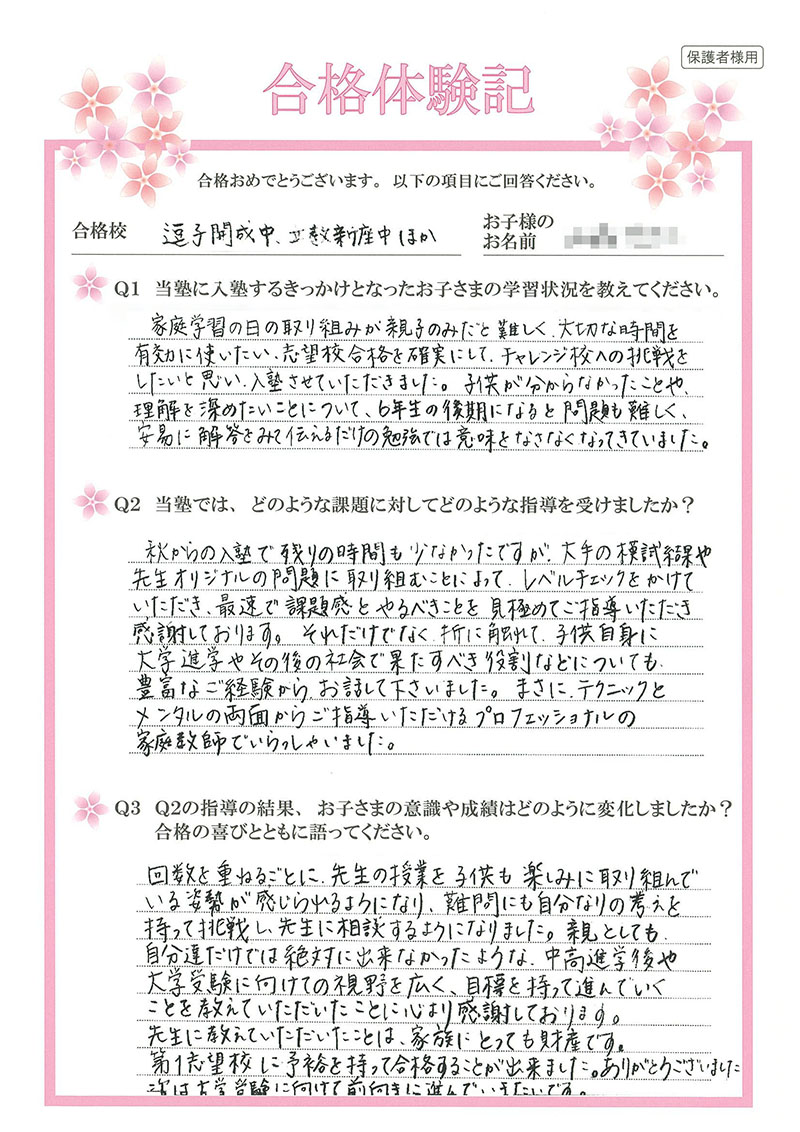 保護者様用
合格体験記
合格おめでとうございます。以下の項目にご回答ください。
合格校 逗子開成中、立教新座中ほか
お子様の
お名前
Q1 当塾に入塾するきっかけとなったお子さまの学習状況を教えてください。
家庭学習の日の取り組みが親子のみだと難しく、大切な時間を
有効に使いたい、志望校合格を確実にして、チャレンジ校への挑戦を
したいと思い、入塾させていただきました。子供が分からなかったことや、
理解を深めたいことについて、6年生の後期になると問題も難しく、
安易に解答をみて伝えるだけの勉強では意味をなさなくなってきていました。
Q2 当塾では、どのような課題に対してどのような指導を受けましたか？
秋からの入塾で残りの時間も少なかったですが、大手の模試結果や
先生オリジナルの問題に取り組むことによって、レベルチェックをかけて
いただき、最速で課題感とやるべきことを見極めてご指導いただき
感謝しております。それだけでなく、折に触れて、子供自身に
大学進学やその後の社会で果たすべき役割などについても、
豊富なご経験から、お話して下さいました。まさに、テクニックと
メンタルの両面からご指導いただけるプロフェッショナルの
家庭教師でいらっしゃいました。
Q3 Q2の指導の結果、お子さまの意識や成績はどのように変化しましたか？
合格の喜びとともに語ってください。
回数を重ねるごとに、先生の授業を子供も楽しみに取り組んで
いる姿勢が感じられるようになり、難問にも自分なりの考えを
持って挑戦し、先生に相談するようになりました。親としても、
自分達だけでは絶対に出来なかったような、中高進学後や
大学受験に向けての視野を広く、目標を持って進んでいく
ことを教えていただいたことに心より感謝しております。
先生に教えていただいたことは、家族にとっても財産です。
第1志望校に予裕を持って合格することが出来ました。ありがとうございました
次は大学受験に向けて前向きに進んでいきたいです。